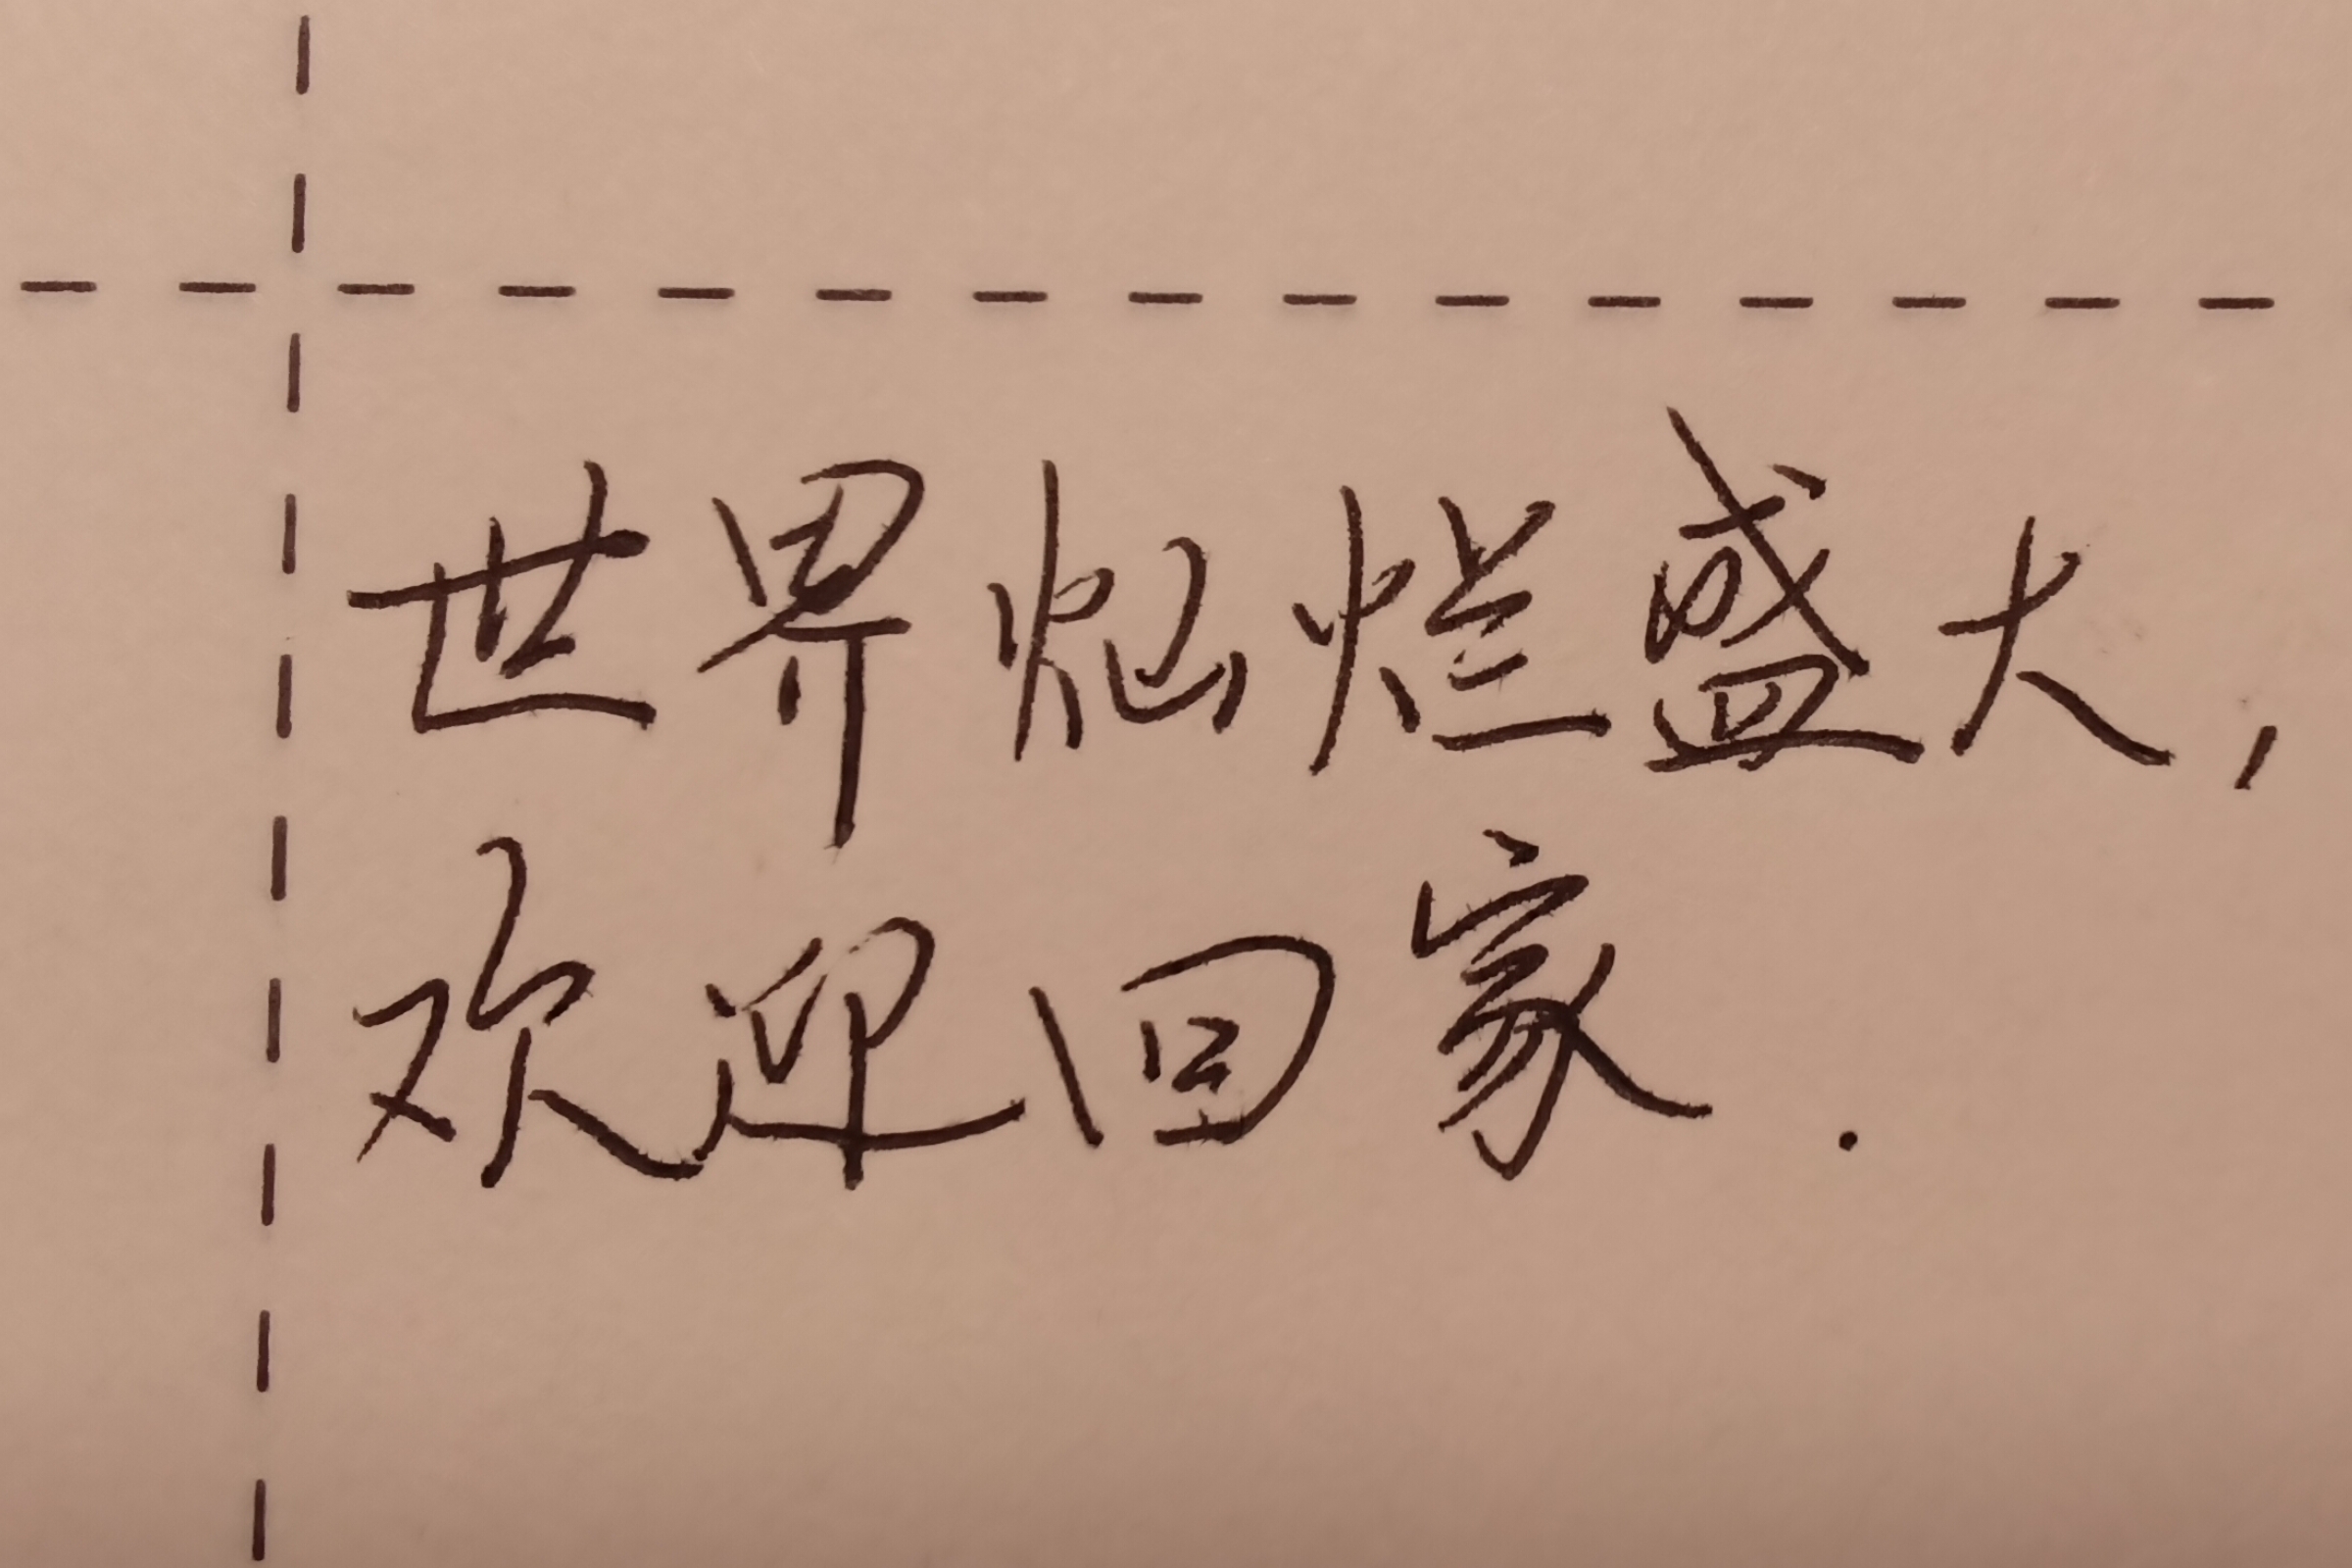 世界灿烂盛大,
欢迎回家.